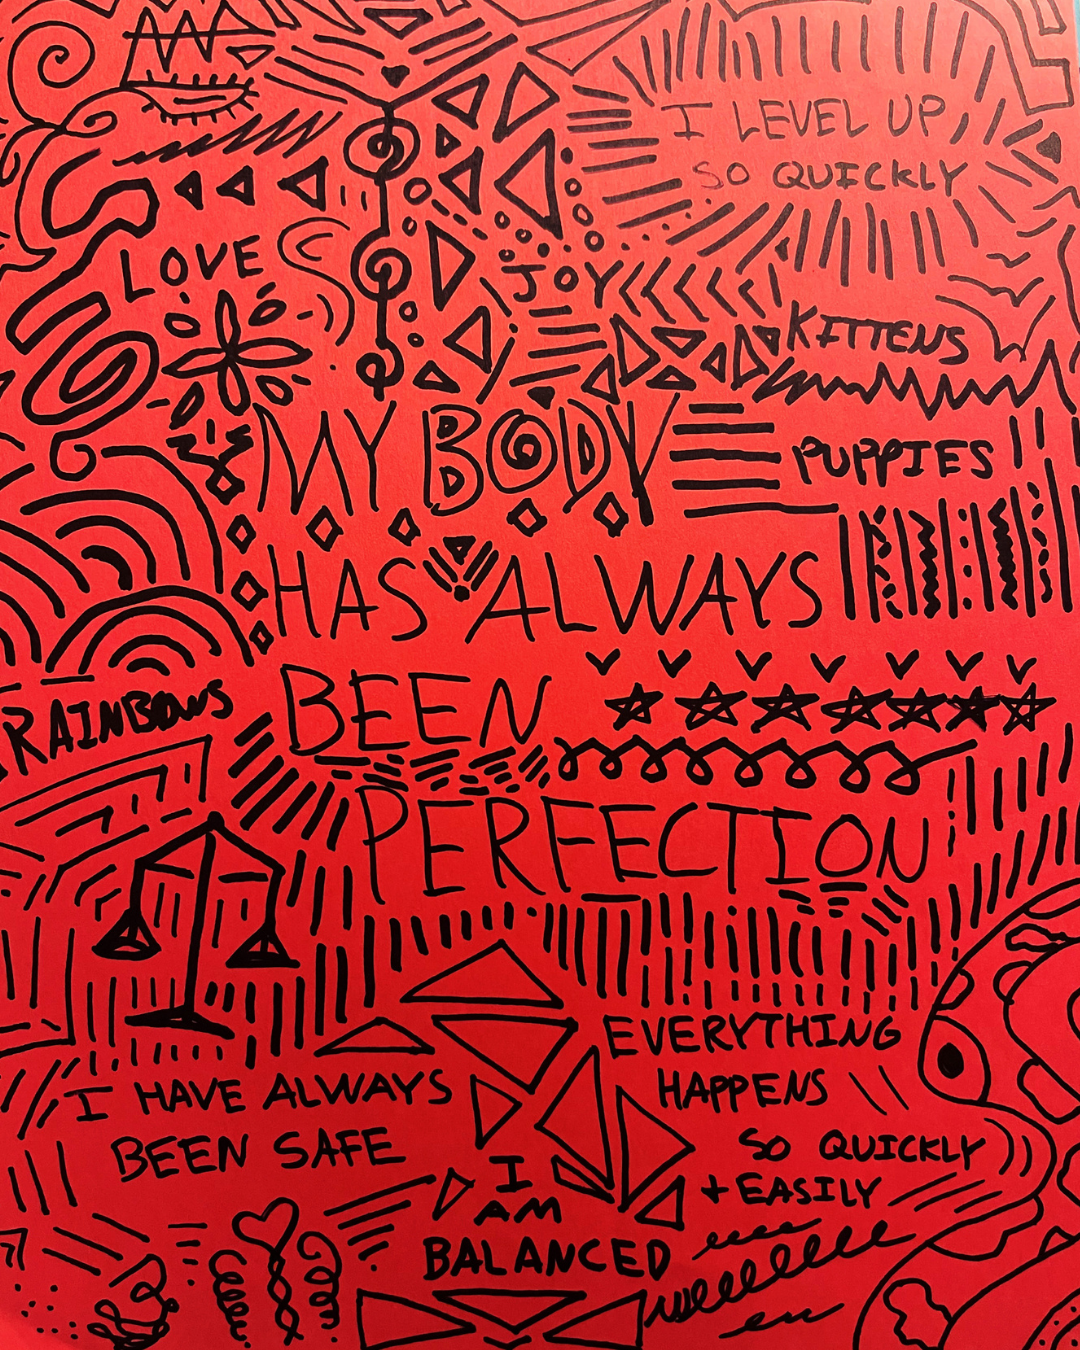 I LEVEL UP,
SO QUICKLY
LOVE
JOY
KITTENS
MY BODY
PUPPIES
HAS ALWAYS
BEEN
RAINBOWS
PERFECTION
EVERYTHING
HAPPENS
SO QUICKLY
+ EASILY
I HAVE ALWAYS
BEEN SAFE
I
AM
BALANCED